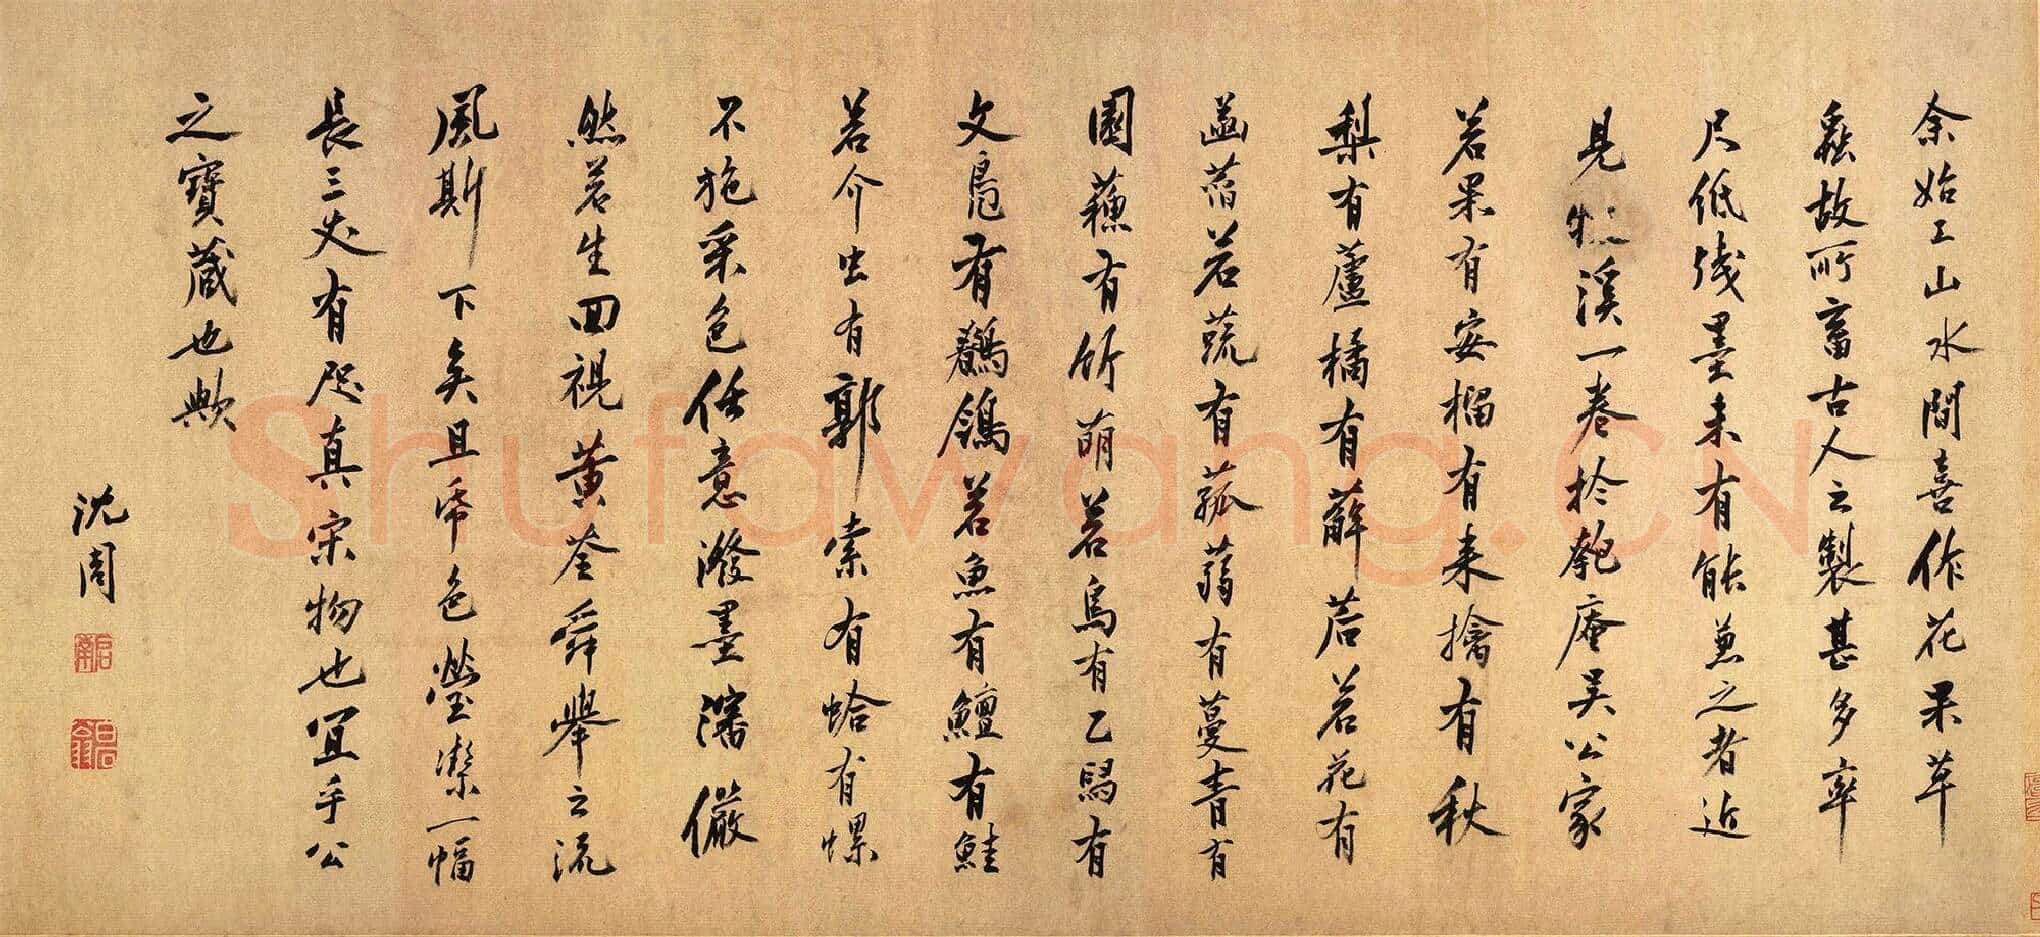 余始工山水間喜作花果草
蟲故所畜古人之製甚多率
尺低殘墨未有能兼之者近
見牧溪一卷於匏庵吴公家
若果有安榴有来擒有秋
梨有蘆橘有薢茩若花有
菡萏若蔬有菰蒻有蔓青有
園蘓有竹萌若鳥有乙舄有
文鳧有鶺鴒若魚有鱣有鮭
若介虫有郭索有蛤有螺
不施采色任意潑墨瀋儼
然若生回視黄荃舜舉之流
風斯下矣且帋色瑩潔一幅
長三丈有咫真宋物也宜乎公
之寳蔵也歟
沈周
啓南
白石翁
Shufawang.CN